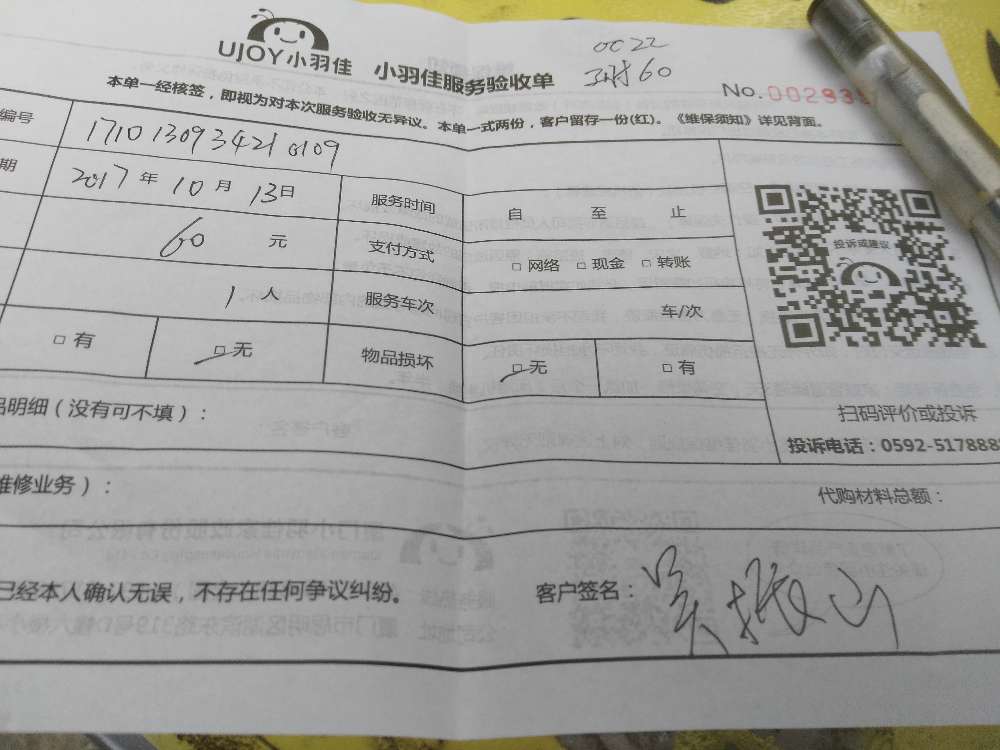 UJOY小羽佳 小羽佳服务验收单
0022
60
No.002939
本单一经核签，即视为对本次服务验收无异议。本单一式两份，客户留存一份(红)。《维保须知》详见背面。
编号 1710130934210109
期 2017年10月13日 服务时间 自 至 止
60 元 支付方式 □ 网络 □ 现金 □ 转账
1 人 服务车次 车/次
□ 有 □ 无 物品损坏 □ 无 □ 有
投诉或建议
扫码评价或投诉
品明细（没有可不填）：
投诉电话：0592-5178885
维修业务）： 代购材料总额：
已经本人确认无误，不存在任何争议纠纷。 客户签名：吴振山